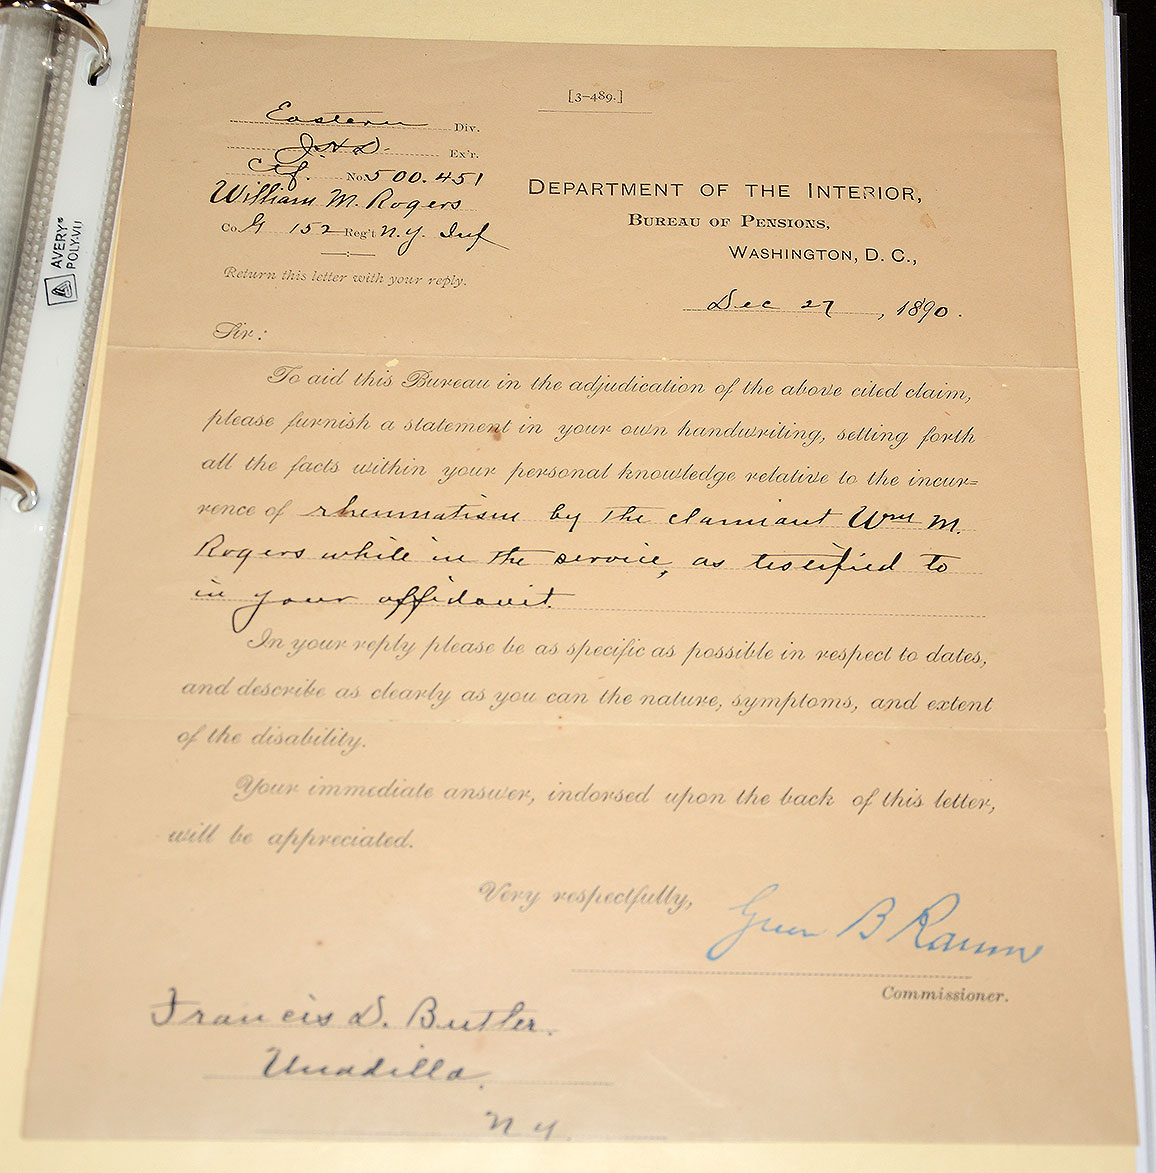 [3-489.]
Eastern Div.
J. H. D. Ex'r.
Ctf. No. 500.451
William M. Rogers
Co. G 152 Reg't N.Y. Inf
Return this letter with your reply.
DEPARTMENT OF THE INTERIOR,
BUREAU OF PENSIONS,
WASHINGTON, D. C.,
Dec 27, 1890.
Sir:
To aid this Bureau in the adjudication of the above cited claim,
please furnish a statement in your own handwriting, setting forth
all the facts within your personal knowledge relative to the incur=
rence of rheumatism by the claimant Wm M.
Rogers while in the service, as testified to
in your affidavit.
In your reply please be as specific as possible in respect to dates,
and describe as clearly as you can the nature, symptoms, and extent
of the disability.
Your immediate answer, indorsed upon the back of this letter,
will be appreciated.
Very respectfully,
Green B Raum
Commissioner.
Francis D. Butler.
Unadilla.
N Y.
AVERY®
POLY-VU